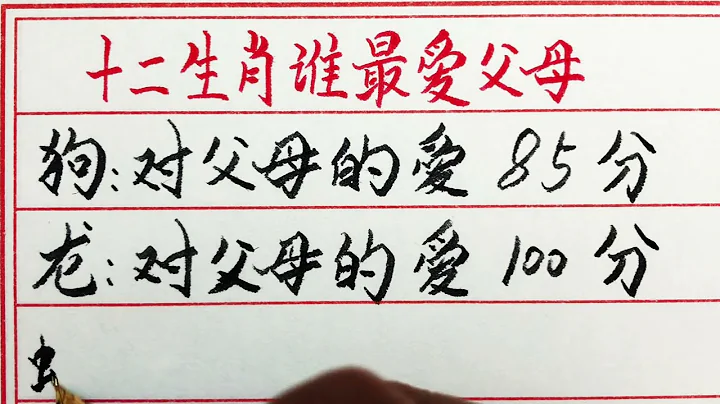 十二生肖谁最愛父母
狗:对父母的愛 85分
龙:对父母的愛 100分